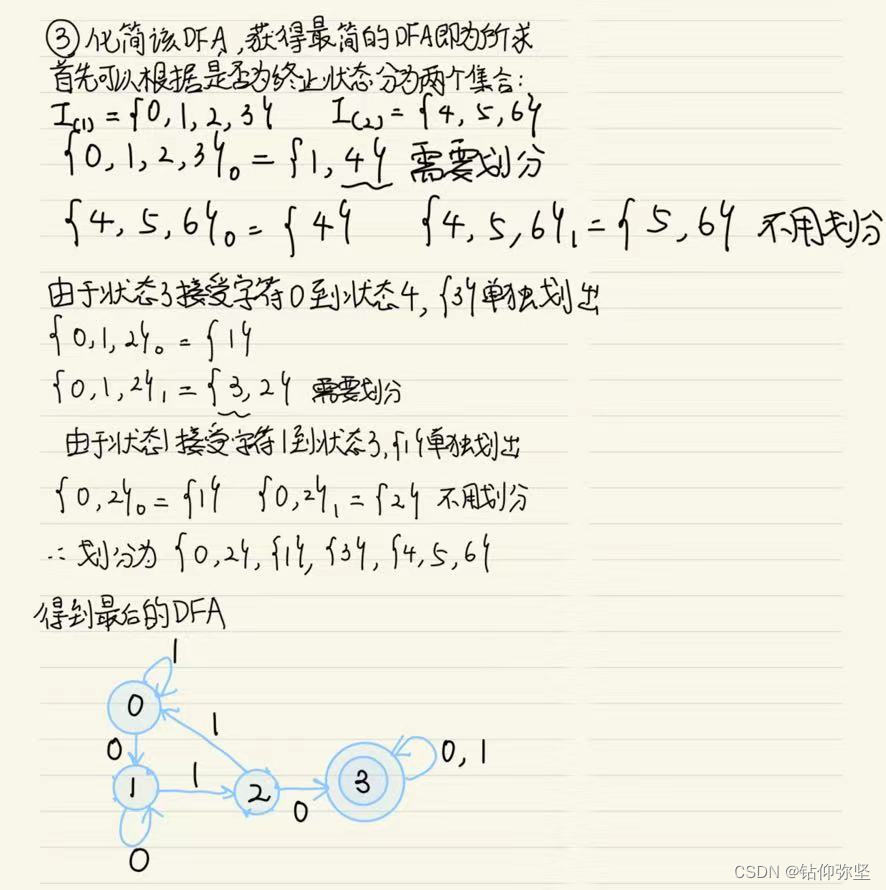 ③化简该DFA,获得最简的DFA即为所求
首先可以根据是否为终止状态分为两个集合:
I(1) = {0,1,2,3} I(2) = {4,5,6}
{0,1,2,3}₀ = {1,4} 需要划分
{4,5,6}₀ = {4} {4,5,6}₁ = {5,6} 不用划分
由于状态3接受字符0到状态4,{3}单独划出
{0,1,2}₀ = {1}
{0,1,2}₁ = {3,2} 需要划分
由于状态1接受字符1到状态3,{1}单独划出
{0,2}₀ = {1} {0,2}₁ = {2} 不用划分
∴ 划分为 {0,2},{1},{3},{4,5,6}
得到最后的DFA
1
0
0
1
1
1
2
0
3
0,1
0
CSDN @钻仰弥坚